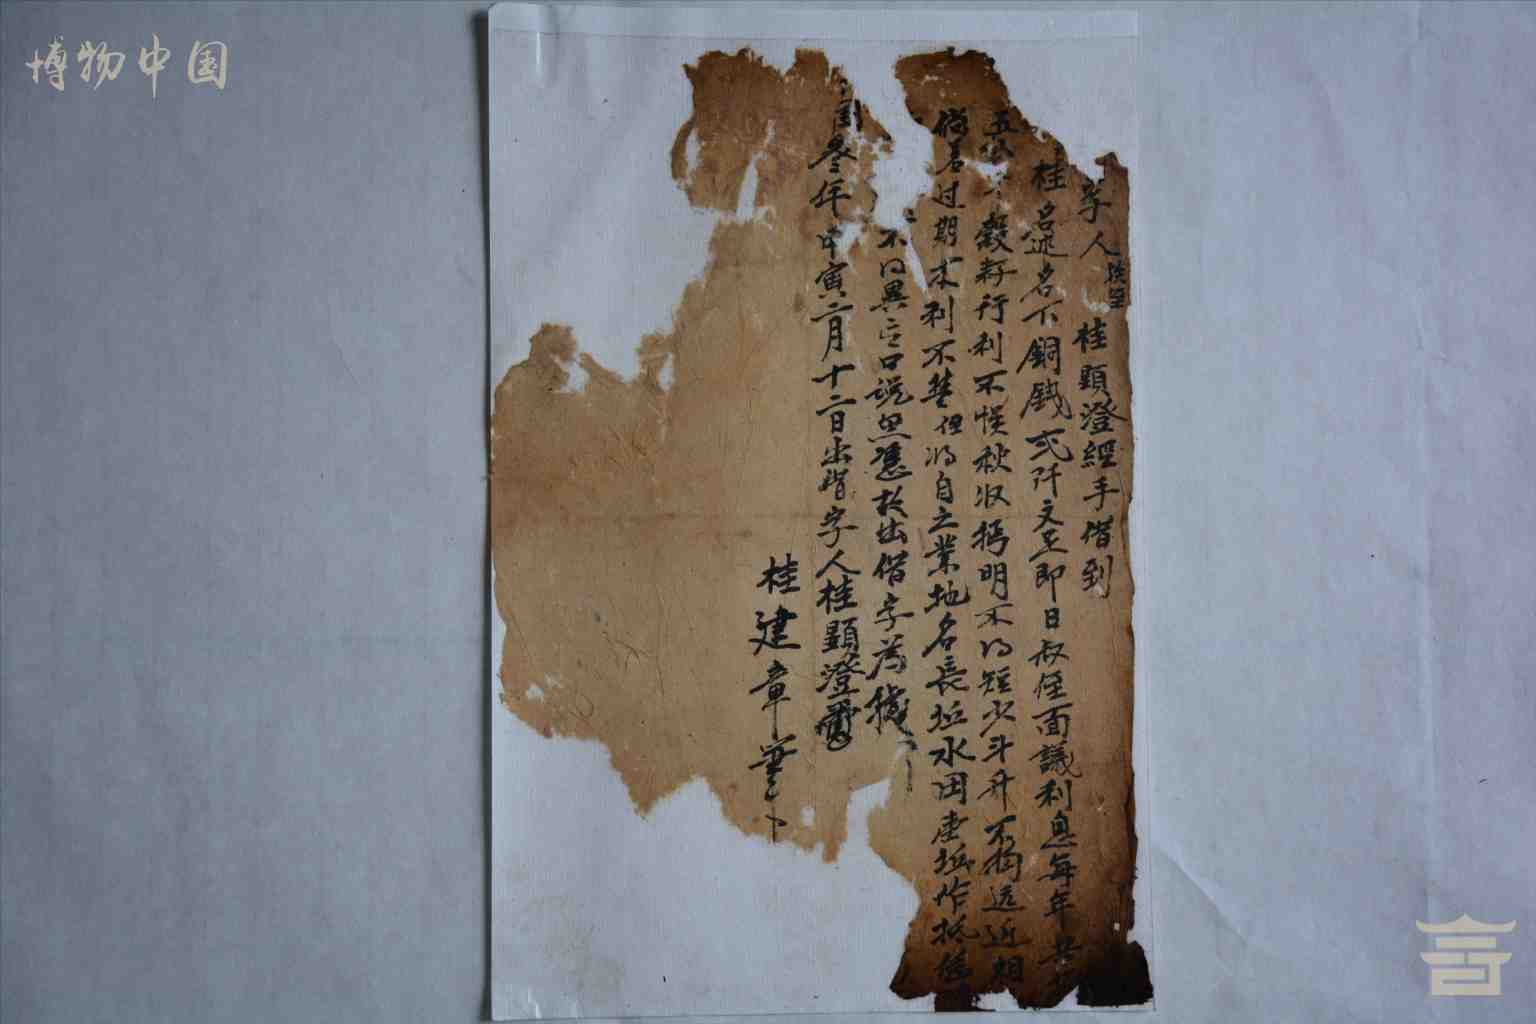 博物中国
字人 桂顕澄經手借到
桂名述名下銅錢弍阡文正即日叔侄面議利息每年共
五 穀籽行利不悮秋收搧明不得短少斗升不拘远近相
若过期本利不楚但將自立業地名長坵水田 坵作抵
不得異言口説無憑故出借字為據
國叁年甲寅二月十二日出借字人桂顕澄
桂建章筆